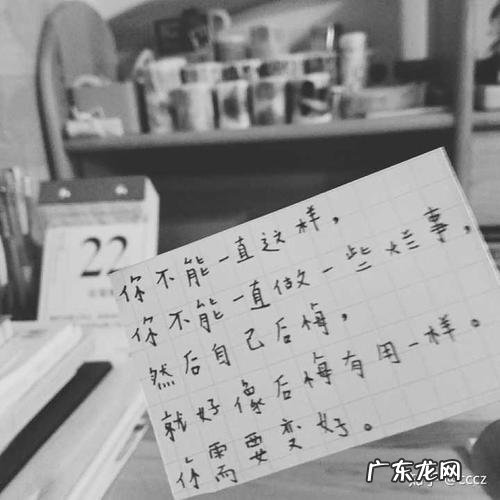 22
你不能一直这样，
你不能一直做一些烂事，
然后自己后悔，
就好像后悔有用一样。
你需要变好。
知乎 @cccz
广东龙网